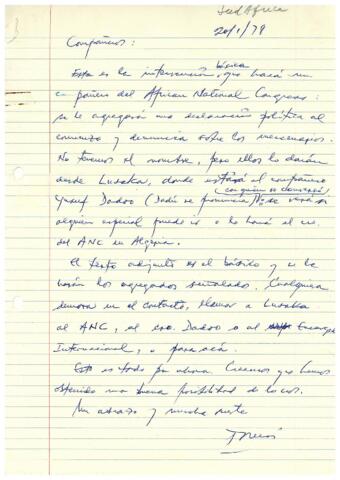 Sud Africa
20/1/79
Compañeros:
Esta es la intervención básica, que hará un
compañero del African National Congress:
se le agregará una declaración política al
comienzo y denuncia sobre los mercenarios.
No tenemos el nombre, pero ellos lo darán
desde Lusaka, donde estará el compañero
Yusuf Dadoo (Dadú se pronuncia)
con quien se
alguien especial puede ir o lo hará el
del ANC en Algeria.
El texto adjunto es el básico y se le
harán los agregados señalados. Cualquier
demora en el contacto, llamar a Lusaka
al ANC, al Dadoo o al Encargado
Internacional, o para acá.
Esto es todo por ahora. Creemos que hemos
obtenido una buena posibilidad de
Un abrazo y mucha suerte